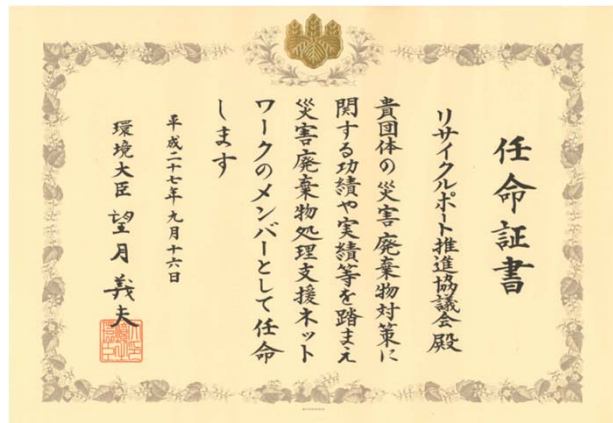 任命証書
リサイクルポート推進協議会 殿
貴団体の災害廃棄物対策に
関する功績や実績等を踏まえ
災害廃棄物処理支援ネット
ワークのメンバーとして任命
します
平成二十七年九月十六日
環境大臣 望月義夫